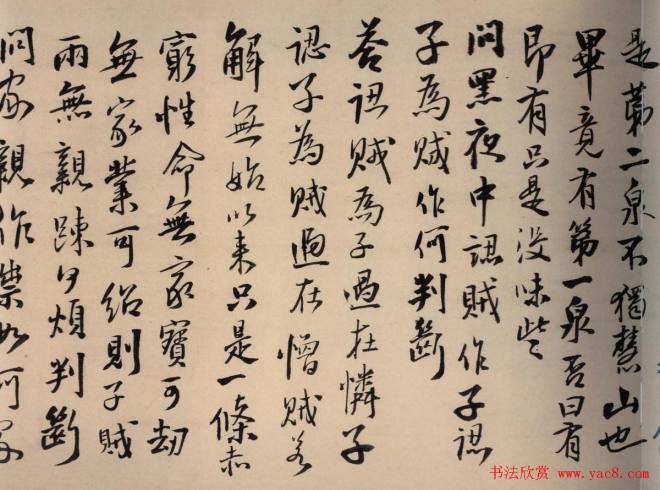 是苐二泉不獨慧山也
畢竟有第一泉否曰有
即有只是没味些
問黑夜中認賊作子認
子為賊作何判斷
答認賊為子過在憐子
認子為賊過在憎賊若
解無始以来只是一條赤
窮性命無家寳可劫
無家業可紹則子賊
兩無親踈何煩判斷
問家親作祟如何
书法欣赏 www.yac8.com